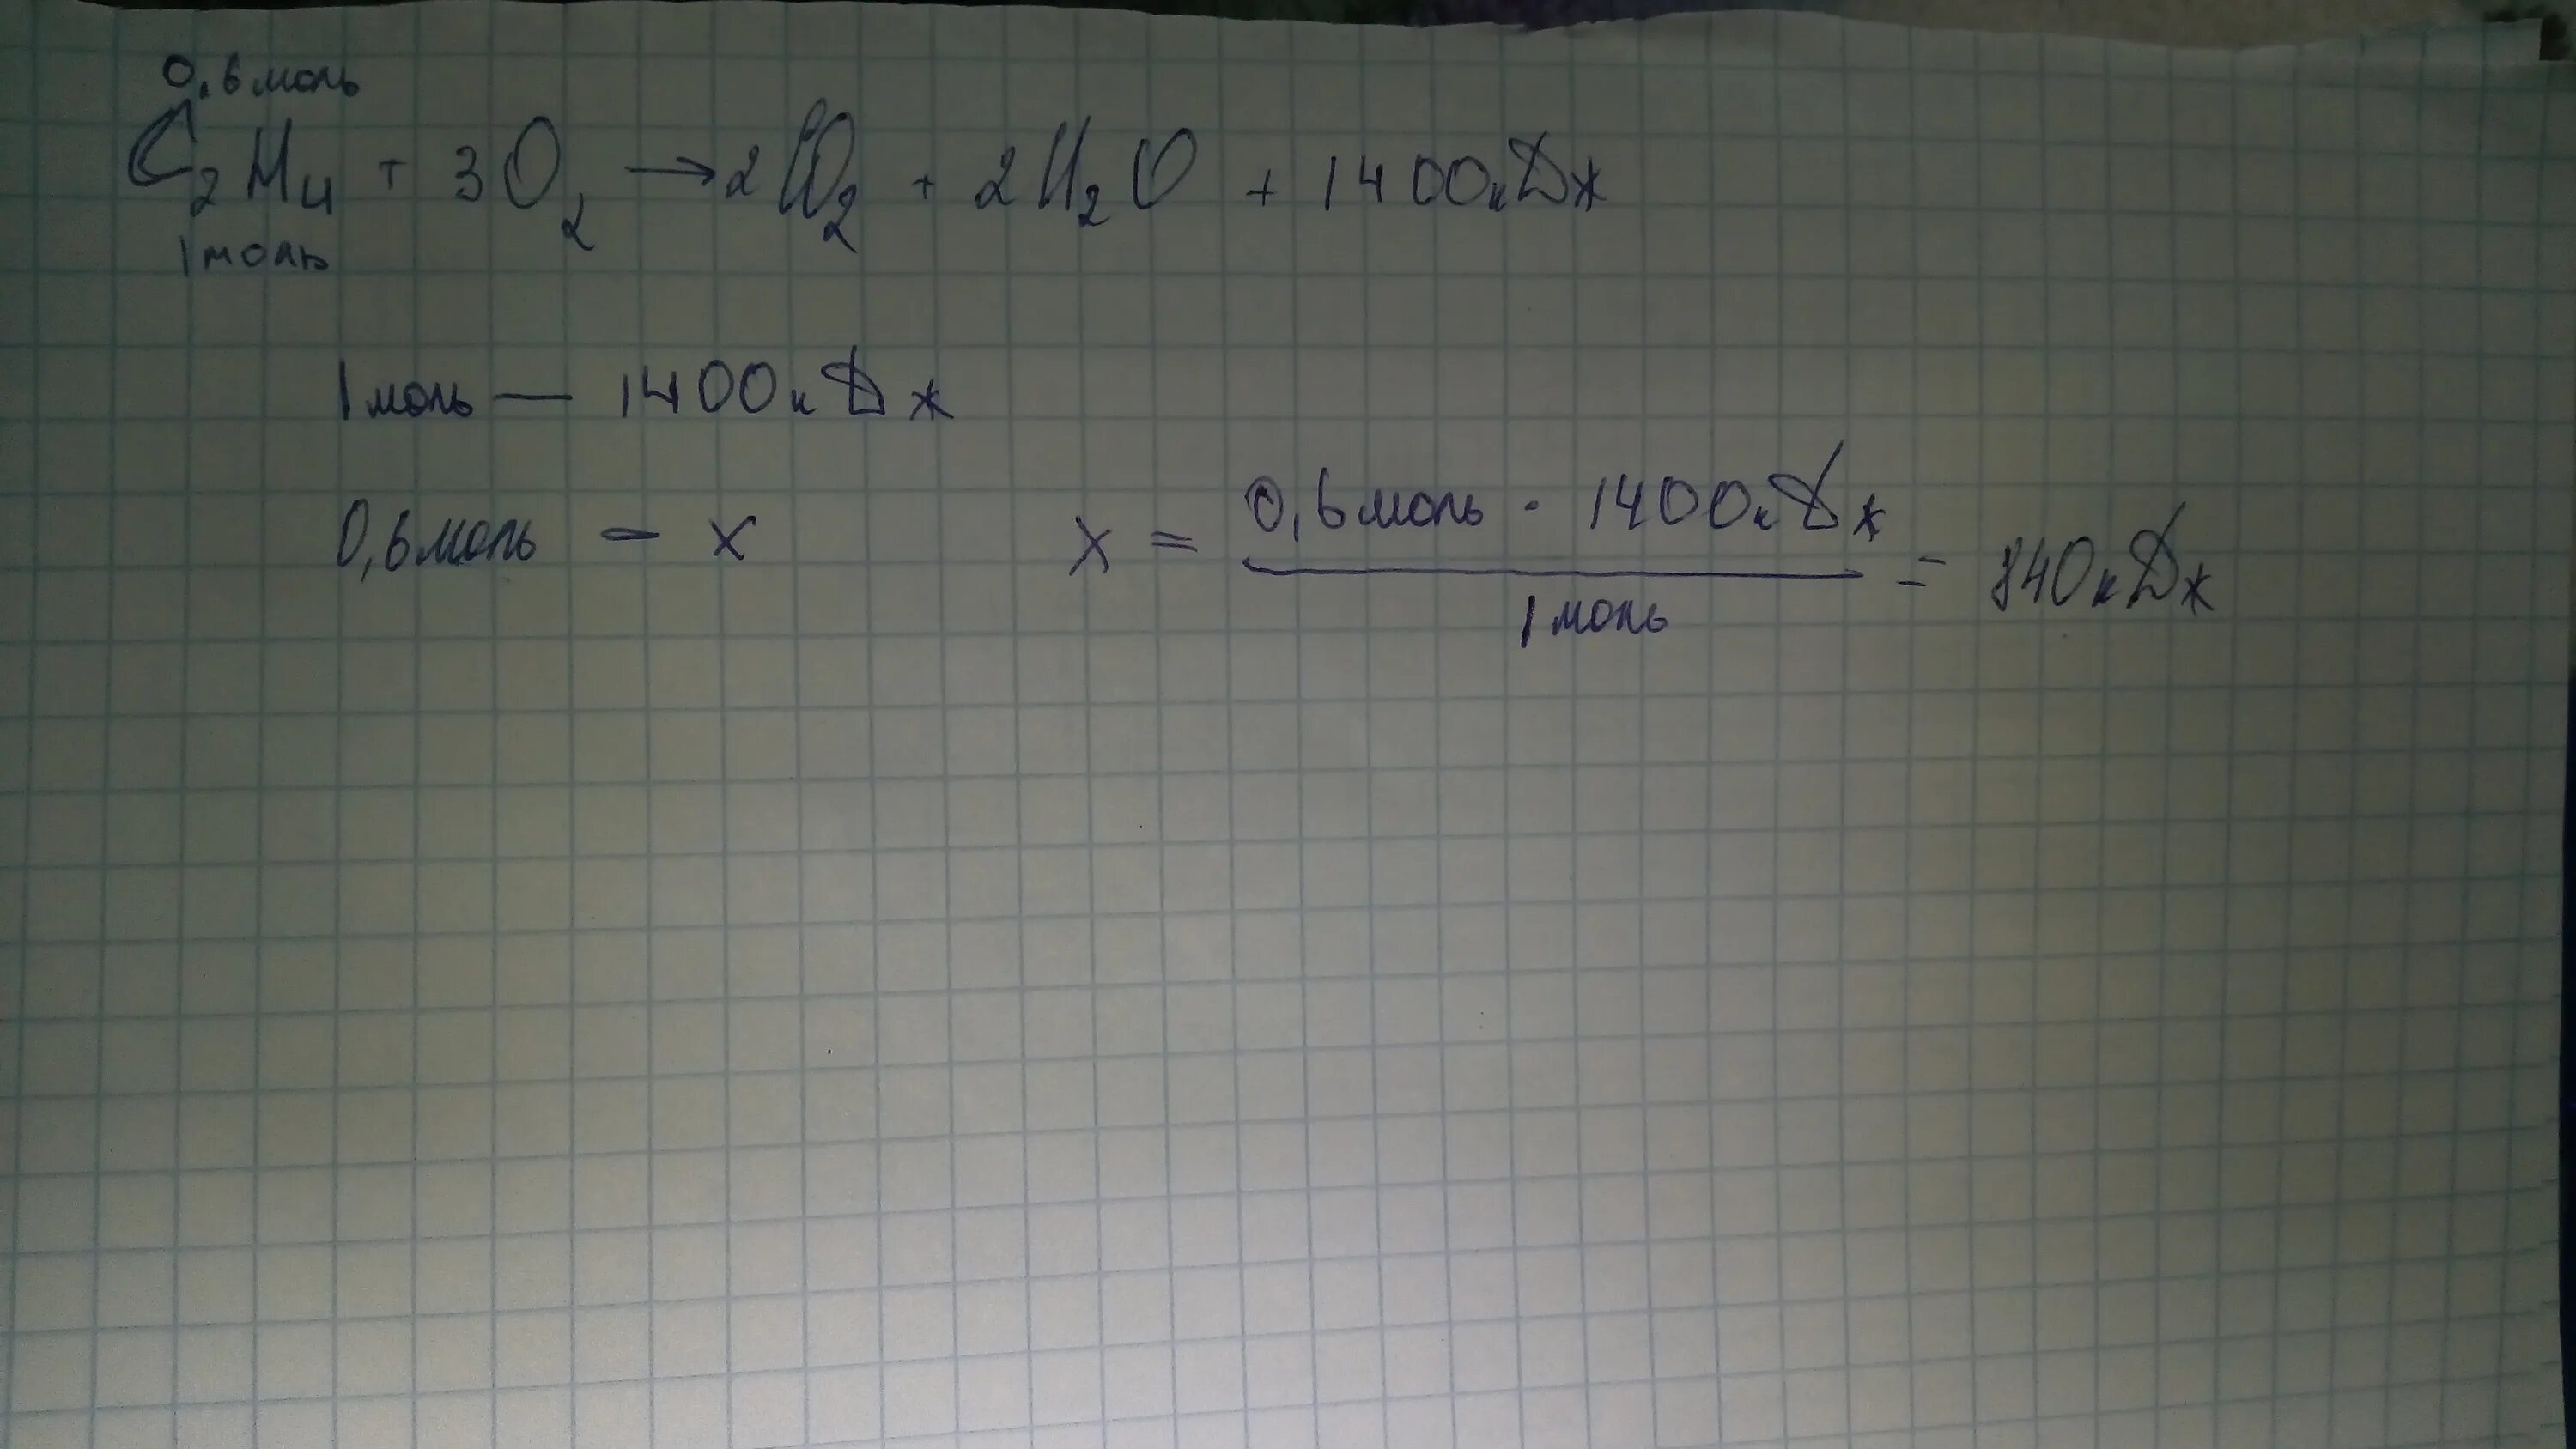 0,6 моль
C₂H₄ + 3O₂ → 2CO₂ + 2H₂O + 1400кДж
1 моль
1 моль — 1400кДж
0,6 моль — x x = 0,6 моль · 1400кДж / 1 моль = 840кДж